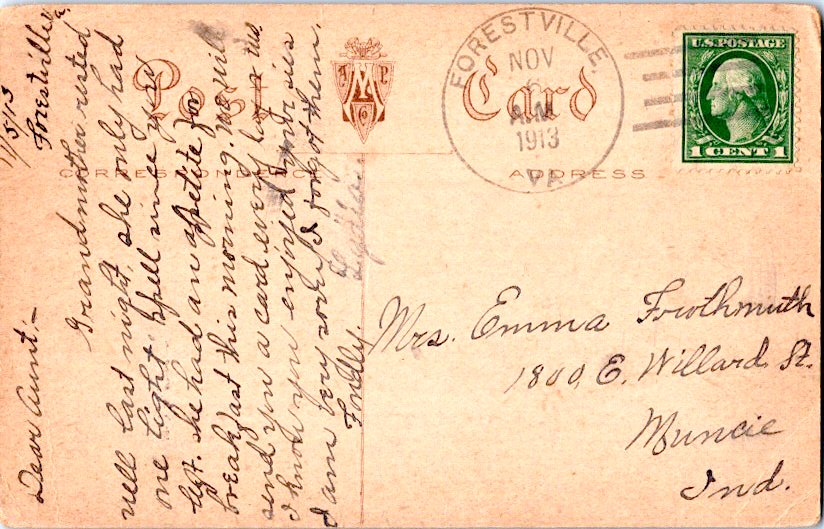 Post Card
A M P Co
CORRESPONDENCE
ADDRESS
FORESTVILLE,
NOV
6
A.M.
1913
VA.
U.S. POSTAGE
1 CENT 1
11/5/13
Forestville
Va.
Dear Aunt:-
Grandmother rested
well last night, she only had
one light spell since you
left. She had an appetite for
breakfast this morning. We will
send you a card every day or two.
I know you enjoyed
I am very sorry I forgot them.
Fondly.
Lydia.
Mrs. Emma Frothmuth
1800 E. Willard St.
Muncie
Ind.